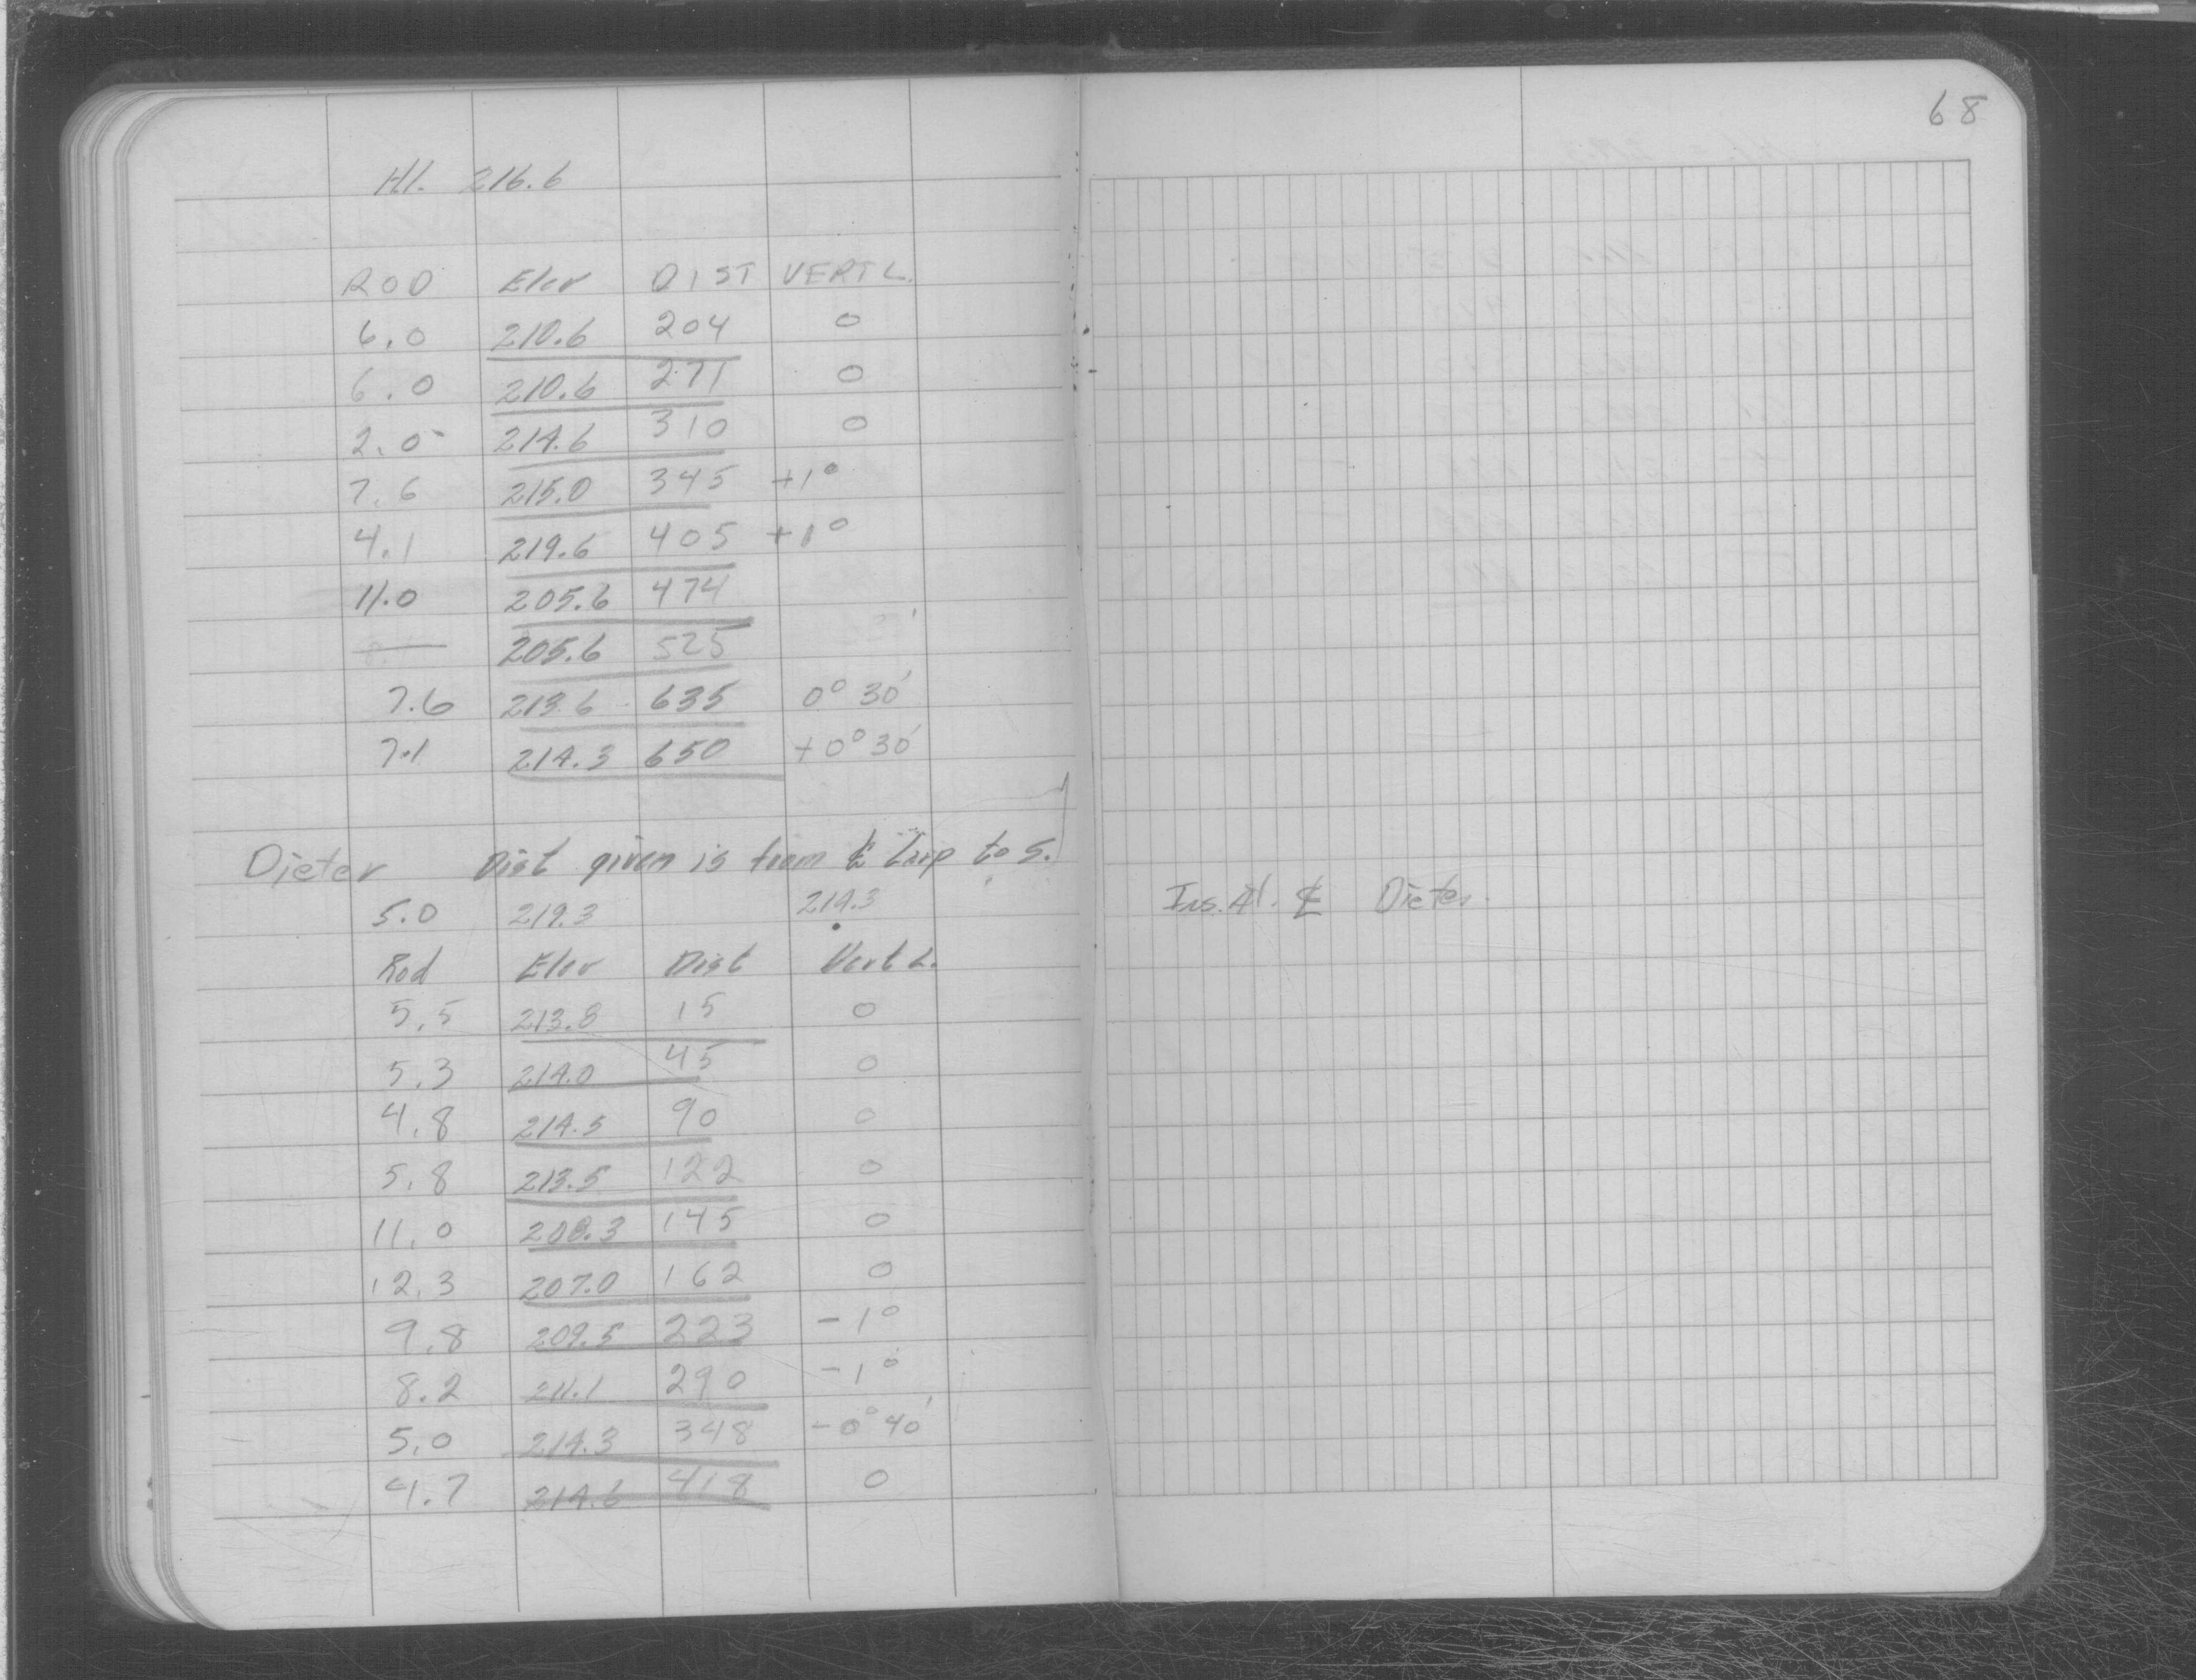 68
HI. 216.6
ROD Elev DIST VERT L.
6.0 210.6 204 0
6.0 210.6 271 0
2.0 214.6 310 0
7.6 215.0 345 +1°
4.1 219.6 405 +1°
11.0 205.6 474
205.6 525
7.6 213.6 635 0° 30'
7.1 214.3 650 +0° 30'
Dieter Dist given is from ℄ to S.
5.0 219.3 214.3
Ins. At. ℄ Dieter.
Rod Elev Dist Vert L.
5.5 213.8 15 0
5.3 214.0 45 0
4.8 214.5 90 0
5.8 213.5 122 0
11.0 208.3 145 0
12.3 207.0 162 0
9.8 209.5 223 -1°
8.2 211.1 290 -1°
5.0 214.3 348 -0° 40'
4.7 214.6 418 0